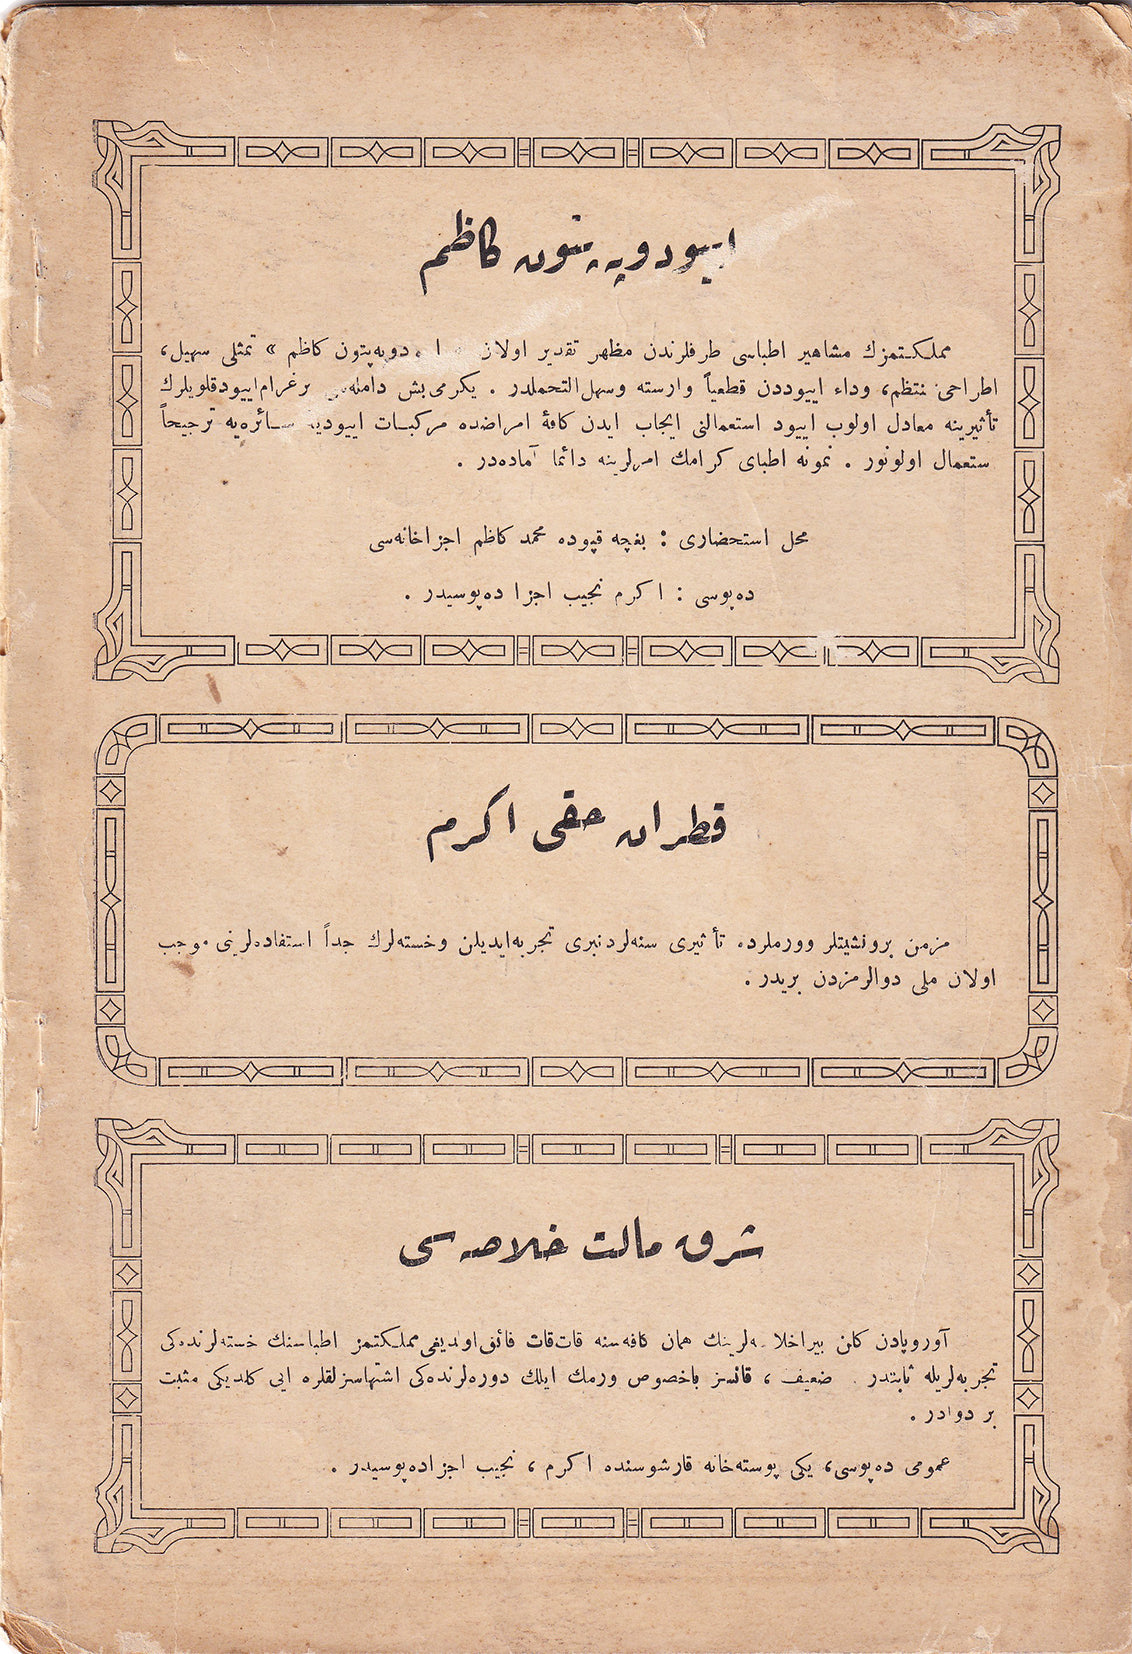 اييودوپه‌پتون كاظم
مملكتمزك مشاهير اطباسی طرفلرندن مظهر تقدير اولان دوپه‌پتون كاظم » تمثلی سهيل،
اطراحی منتظم، وداء اييوددن قطعياً وارسته وسهل‌التحملدر . يكرمی‌بش دامله‌سی برغرام‌اييودقلويلرك
تأثيرينه معادل اولوب اييود استعمالنی ايجاب ايدن كافهٔ امراضده مركبات اييوديه سائره‌يه ترجيحاً
ستعمال اولونور . نمونه اطبای كرامك امرلرينه دائما آماده‌در .
محل استحضاری : بغچه قپوده محمد كاظم اجزاخانه‌سی
ده‌پوسی : اكرم نجيب اجزا ده‌پوسيدر .
قطران حقی اكرم
مزمن برونشيتلر وورملرده تأثيری سنه‌لردنبری تجربه‌ايديلن وخسته‌لرك جداً استفاده‌لرينی موجب
اولان ملی دوالرمزدن بريدر .
شرق مالت خلاصه‌سی
آوروپادن كلن بيراخلاصه‌لرينك همان كافه‌سنه قات‌قات فائق‌اولديغی‌مملكتمز اطباسنك خسته‌لرنده‌كی
تجربه‌لريله ثابتدر . ضعيف ، قانسز باخصوص ورمك ايلك دوره‌لرنده‌كی اشتهاسزلقلره ايی كلديكی مثبت
بر دوادر .
عمومی ده‌پوسی، يكی پوسته‌خانه قارشوسنده اكرم ، نجيب اجزاده‌پوسيدر .